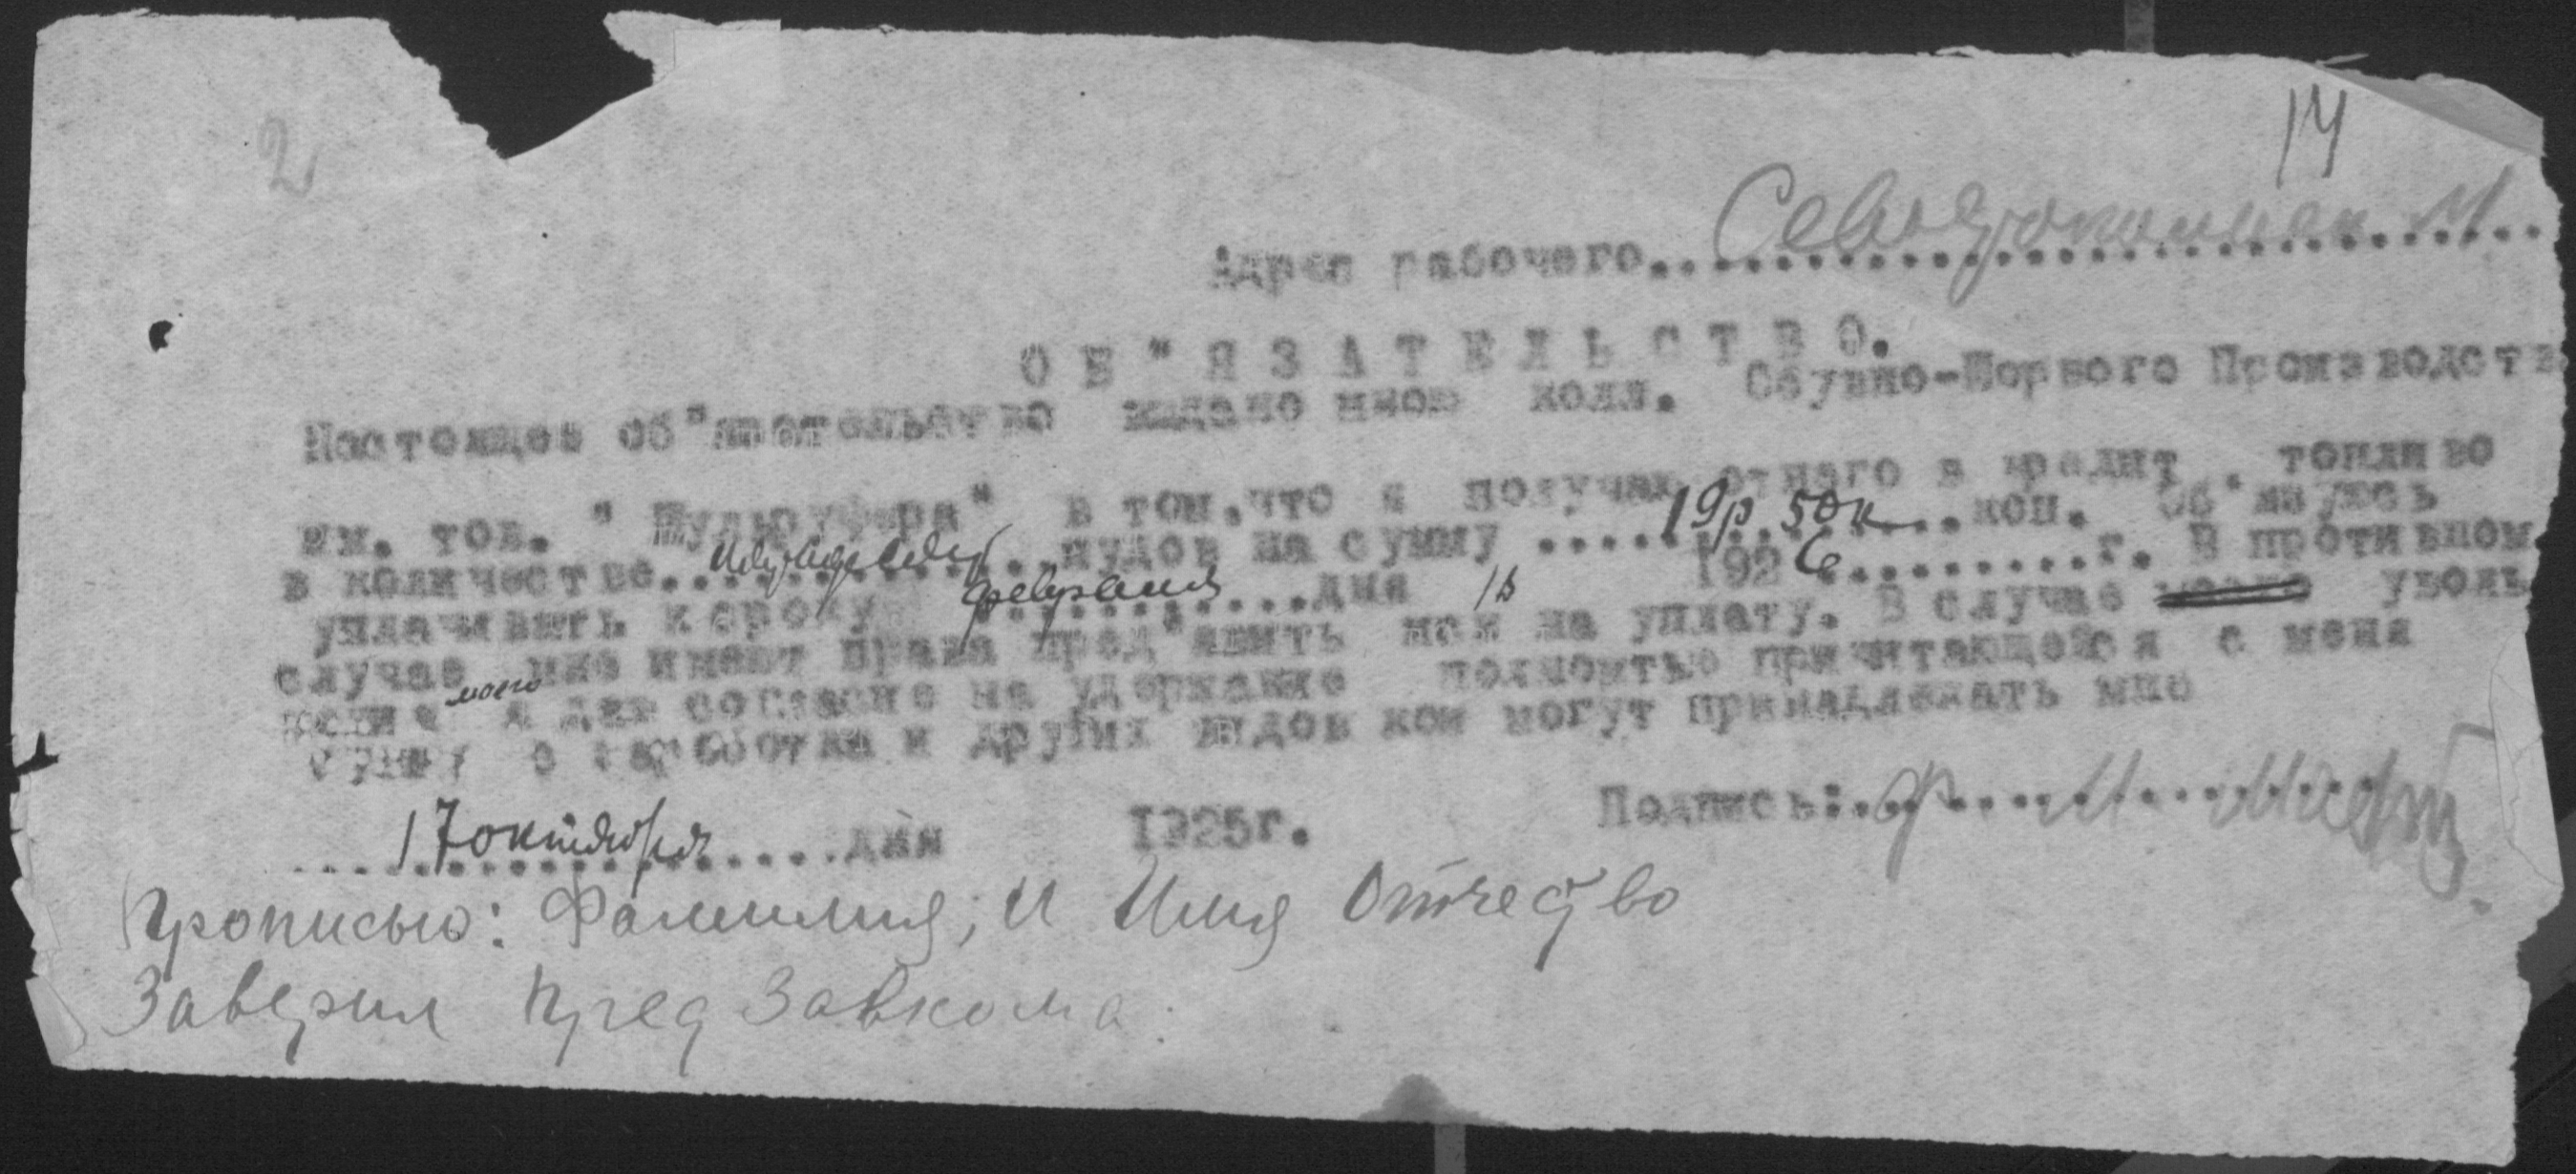 2
14
Адрес рабочего
ОБ"ЯЗАТЕЛЬСТВО.
Настоящее об"язательство выдано мною колл. Обувно-Шорного Производств
им. тов. " " в том, что я получаю от него в кредит топливо
в количестве пудов на сумму 19р 50к коп. Об"язуюсь
уплачивать к сроку февраля дня 15 1926 г. В противном
случае мне имеют права пред"явить иск на уплату. В случае уволь
нения моего я даю согласие на удержание полностью причитающейся с меня
сумму с заработка и других видов кои могут принадлежать мне
17 октября дня 1925г. Подпись:
Прописью: Фамилия, и Имя Отчество
Заверил Пред Завкома